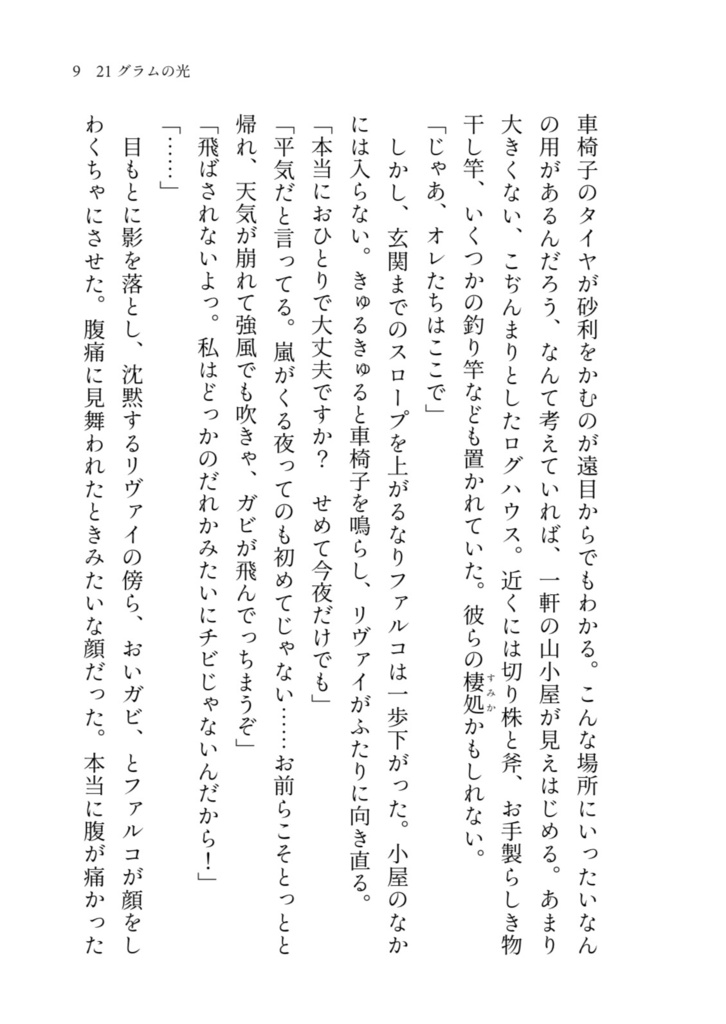 9 21グラムの光
車椅子のタイヤが砂利をかむのが遠目からでもわかる。こんな場所にいったいなん
の用があるんだろう、なんて考えていれば、一軒の山小屋が見えはじめる。あまり
大きくない、こぢんまりとしたログハウス。近くには切り株と斧、お手製らしき物
干し竿、いくつかの釣り竿なども置かれていた。彼らの棲処すみかかもしれない。
「じゃあ、オレたちはここで」
しかし、玄関までのスロープを上がるなりファルコは一歩下がった。小屋のなか
には入らない。きゅるきゅると車椅子を鳴らし、リヴァイがふたりに向き直る。
「本当におひとりで大丈夫ですか？　せめて今夜だけでも」
「平気だと言ってる。嵐がくる夜ってのも初めてじゃない……お前らこそとっとと
帰れ、天気が崩れて強風でも吹きゃ、ガビが飛んでっちまうぞ」
「飛ばされないよっ。私はどっかのだれかみたいにチビじゃないんだから！」
「……」
目もとに影を落とし、沈黙するリヴァイの傍ら、おいガビ、とファルコが顔をし
わくちゃにさせた。腹痛に見舞われたときみたいな顔だった。本当に腹が痛かった